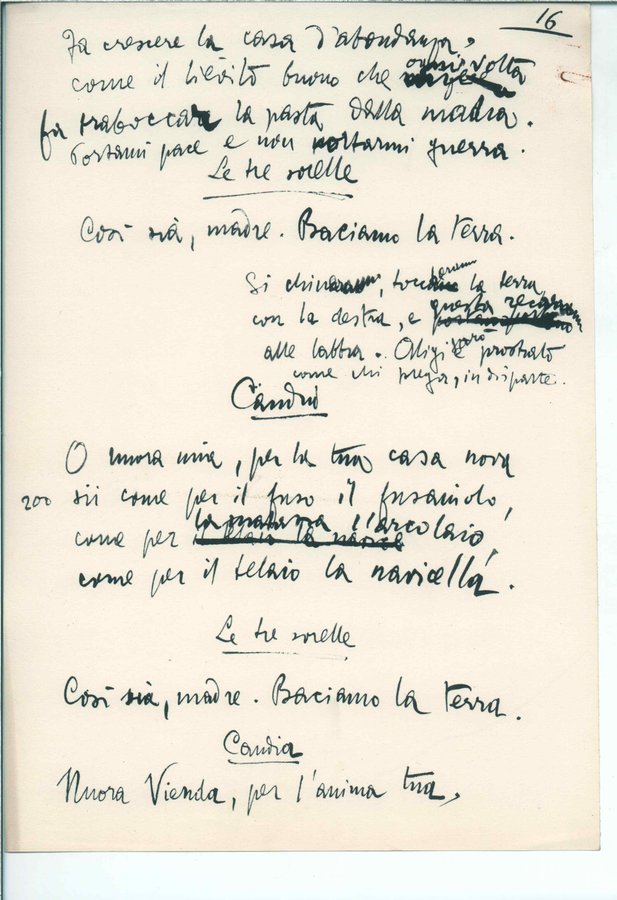 16
Fa crescere la casa d'abondanza,
come il lièvito buono che ogni volta
fa traboccar la pasta dalla madia.
Portami pace e non portarmi guerra.
Le tre sorelle
Così sia, madre. Baciamo la terra.
Si chineranno, toccheranno la terra
con la destra, e questa recheranno
alle labbra. Aligi sarà prostrato
come chi prega, in disparte.
Candia
O nuora mia, per la tua casa nova
200 sii come per il fuso il fusaiolo,
come per la matassa l'arcolaio,
come per il telaio la navicella.
Le tre sorelle
Così sia, madre. Baciamo la terra.
Candia
Nuora Vienda, per l'anima tua,